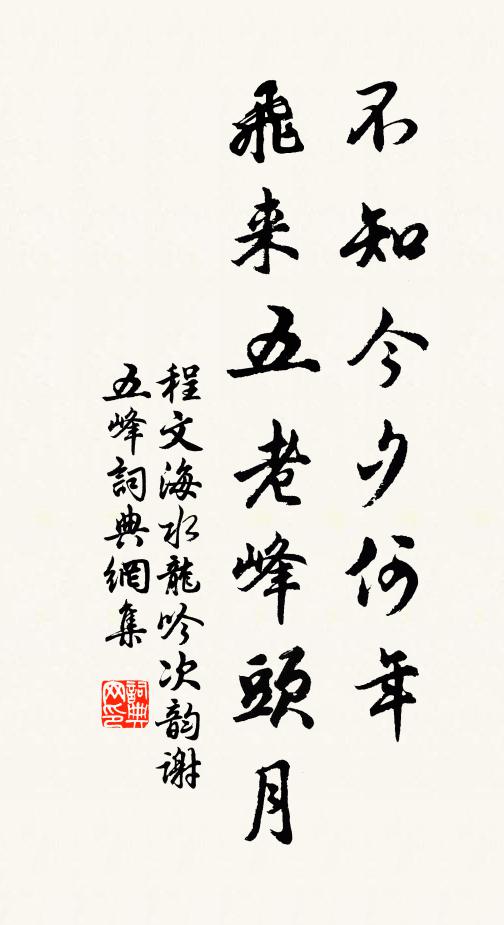 不知今夕何年
飛来五老峰頭月
程文海水龍吟次韵谢
五峰詞典網集
詞典网印